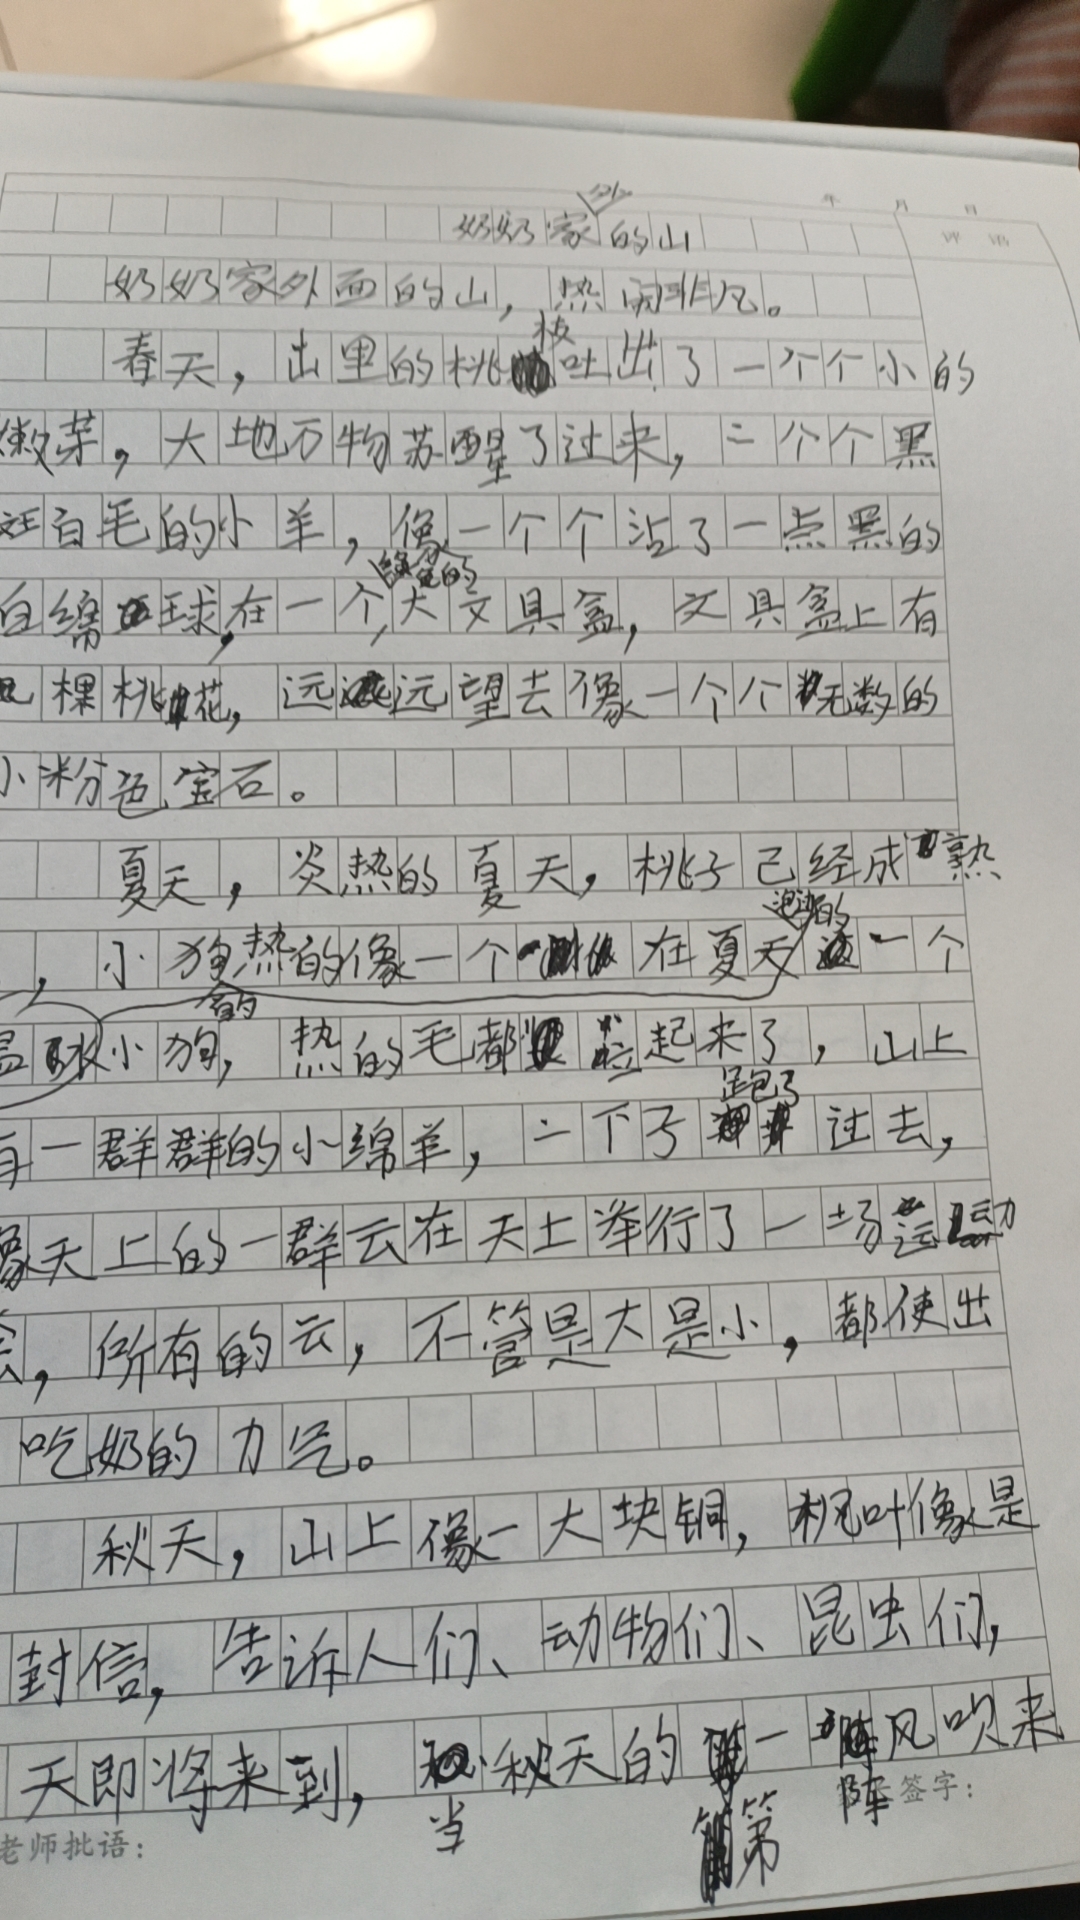 年 月 日
奶奶家的山
奶奶家外面的山，热闹非凡。
枝
春天，出里的桃吐出了一个个小的
嫩芽，大地万物苏醒了过来，一个个黑
斑白毛的小羊，像一个个沾了一点黑的
白绵球，在一个大文具盒，文具盒上有
几棵桃花，远远望去像一个个无数的
小粉色宝石。
夏天，炎热的夏天，桃子已经成熟
，小狗热的像一个在夏天一个
小狗，热的毛都粒起来了，山上
跑了
有一群群的小绵羊，一下子过去，
像天上的一群云在天土举行了一场运动
会，所有的云，不管是大是小，都使出
吃奶的力气。
秋天，山上像一大块铜，枫叶像是
封信，告诉人们、动物们、昆虫们，
天即将来到，秋天的一风吹来
当 第 阵 签字：
老师批语：